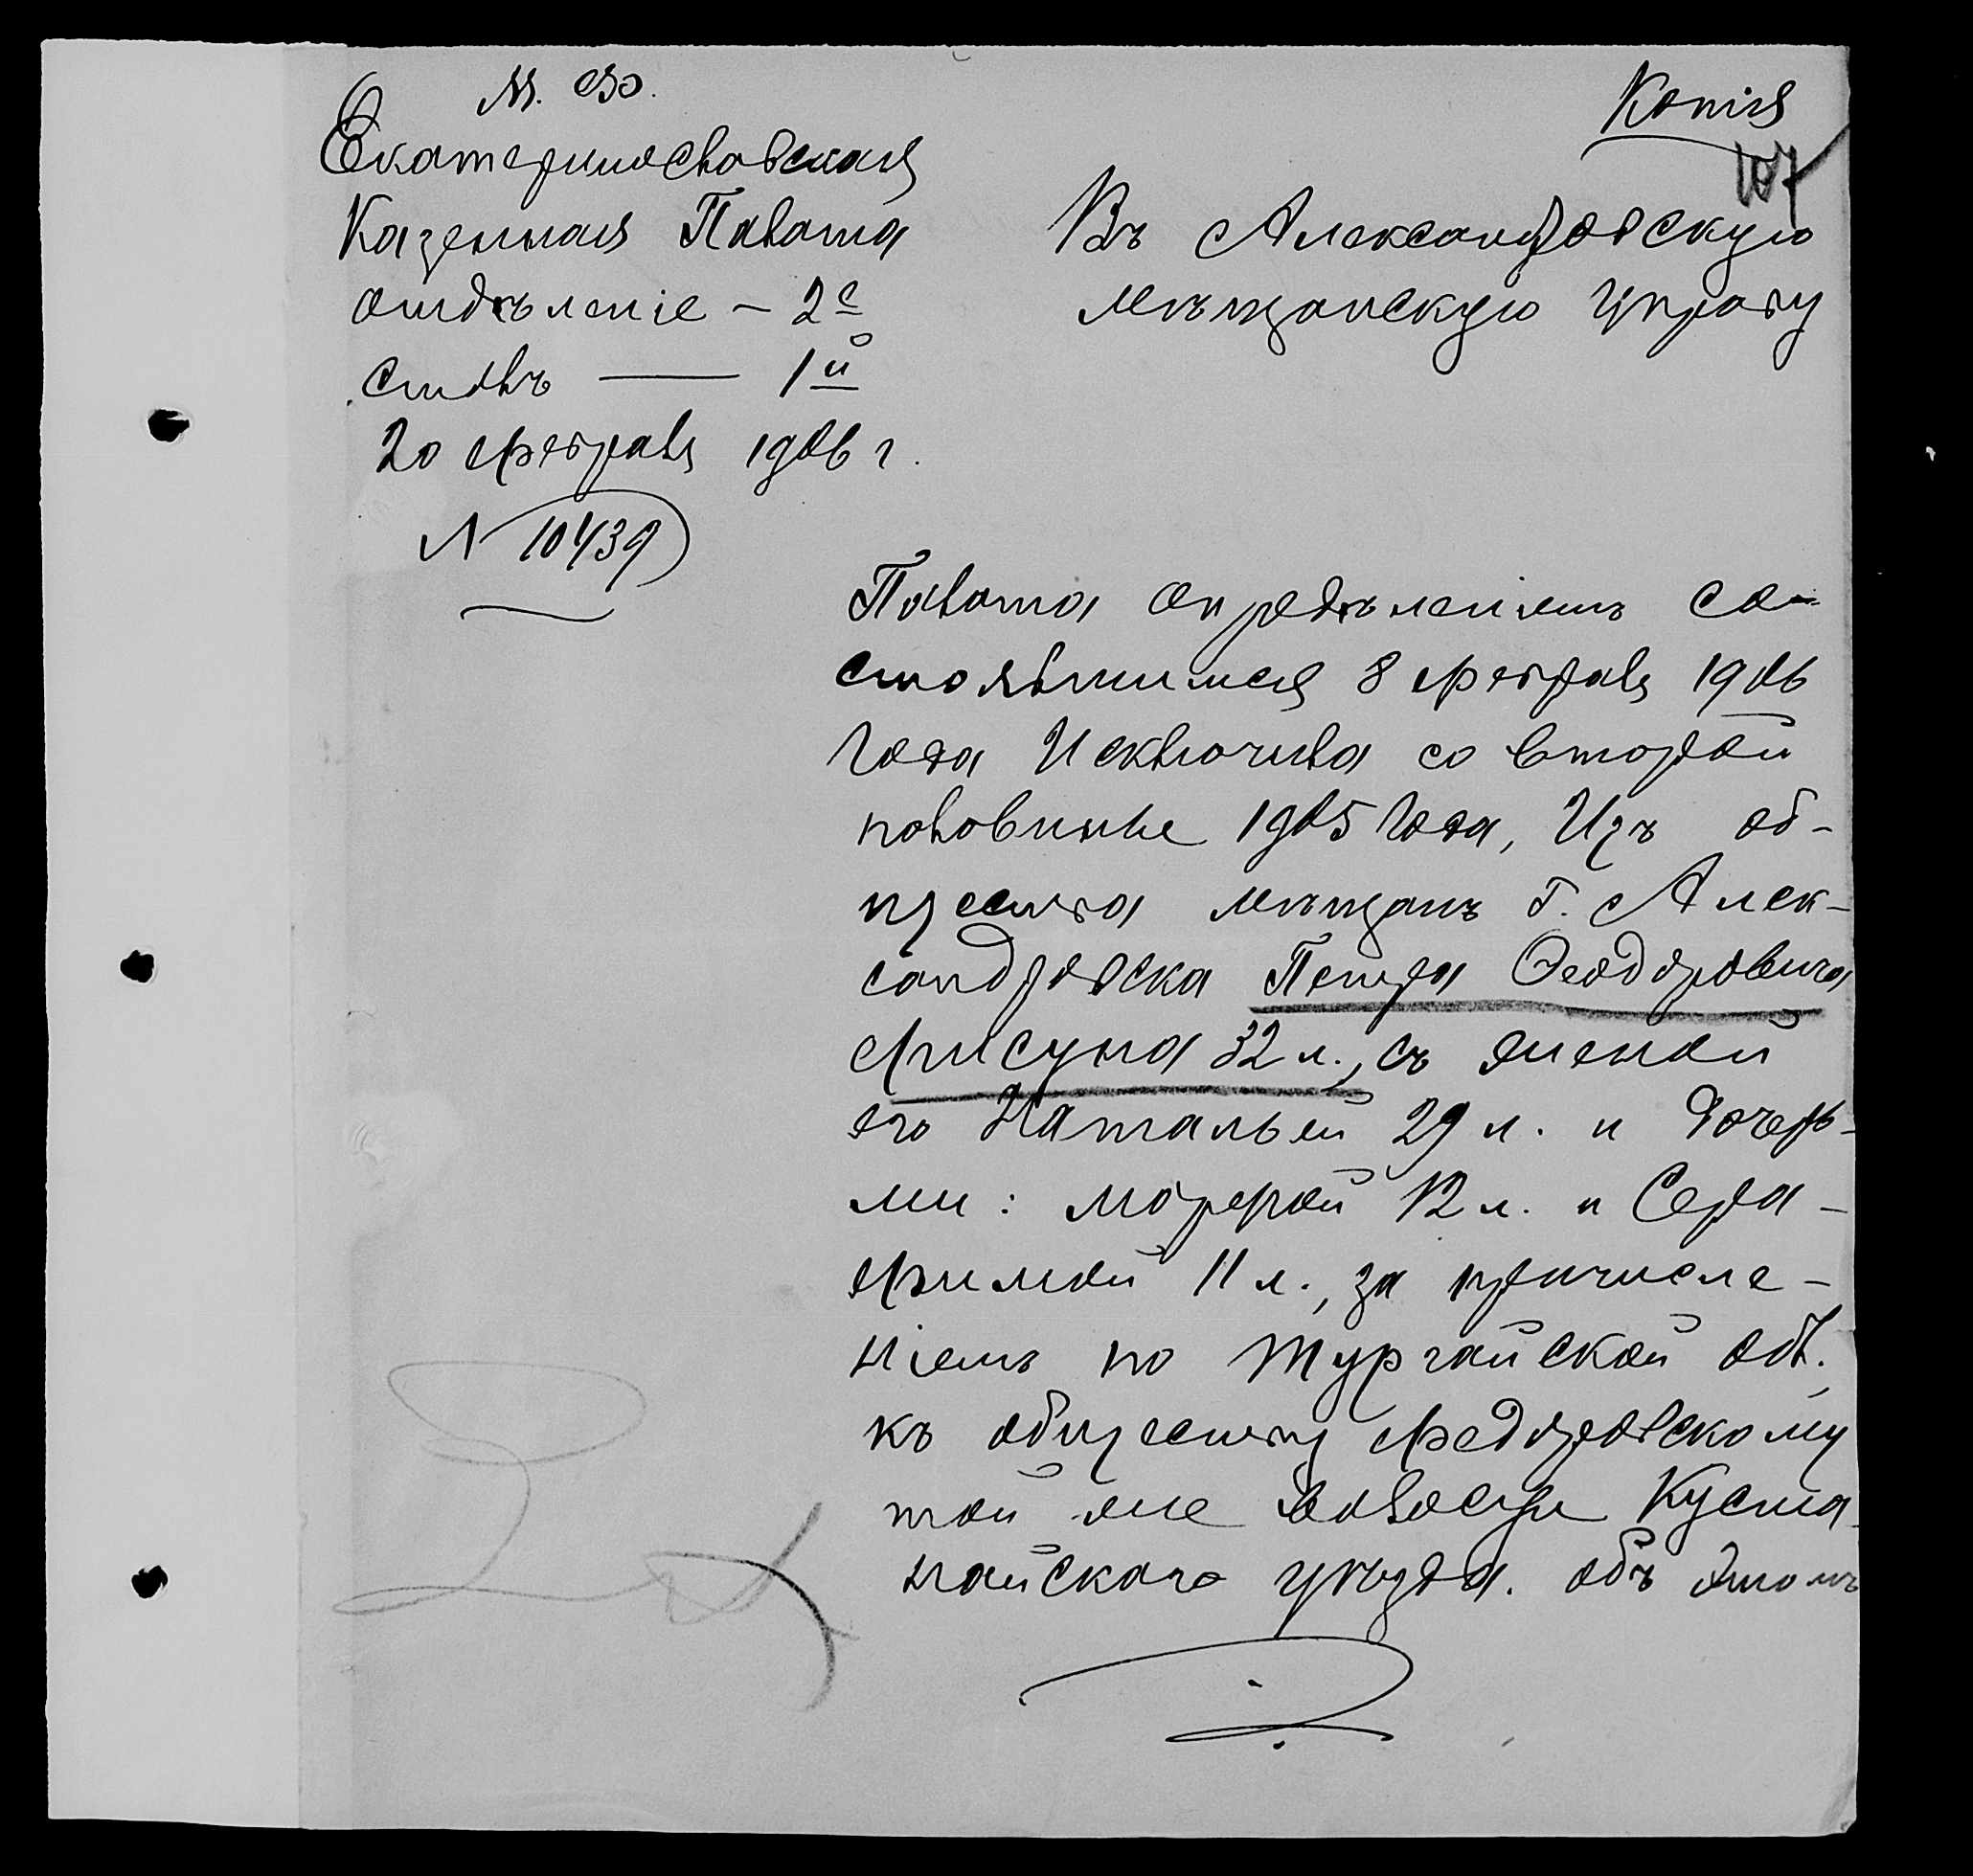 М. Ф.
Копія
107
Екатеринославская
Казенная Палата
отдѣленіе – 2е
столъ — 1й
20 февраля 1906 г.
N 10439
Въ Александровскую
мѣщанскую управу
Палата опредѣленіемъ со-
стоявшимся 8 февраля 1906
года Исключила со второй
половины 1905 года, Изъ об-
щества мѣщанъ г. Алек-
сандровска Петра Феодоровича
Фисуна 32 л., съ женой
его Натальей 29 л. и дочерь-
ми: Марфой 12 л. и Сера-
фимой 11 л., за причисле-
ніемъ по Тургайской обл.
къ обществу Федоровскому
той же волости Куста-
найского уѣзда. объ этомъ